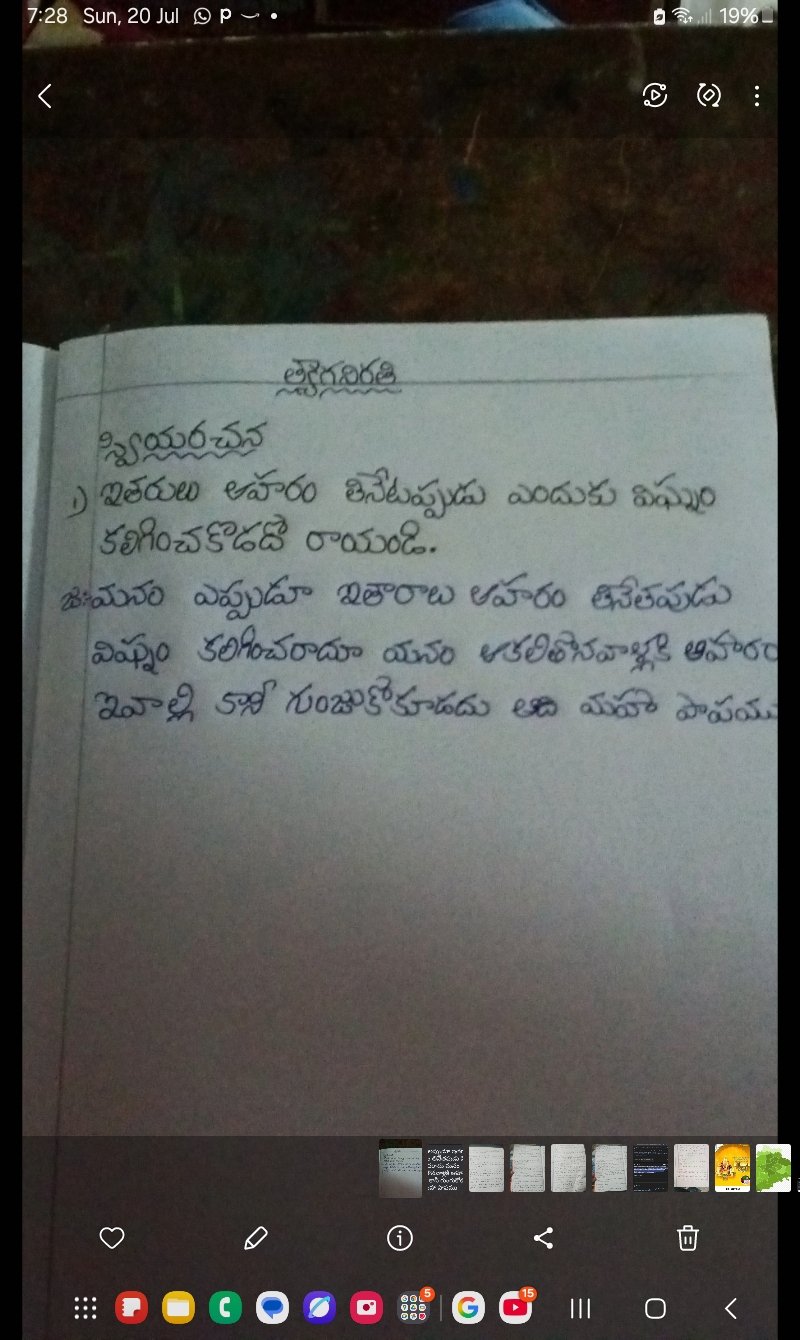 7:28 Sun, 20 Jul
19%
త్యాగనిరతి
స్వీయరచన
1) ఇతరులు ఆహారం తినేటప్పుడు ఎందుకు విఘ్నం
కలిగించకూడదో రాయండి.
జ:మనం ఎప్పుడూ ఇతారాలు ఆహారం తినేతపుడు
విఘ్నం కలిగించరాదూ యనం ఆకలితోనవాళ్లకి ఆహారం
ఇవాల్లి కానీ గుంజుకోకూడదు అది మహా పాపము
5
15